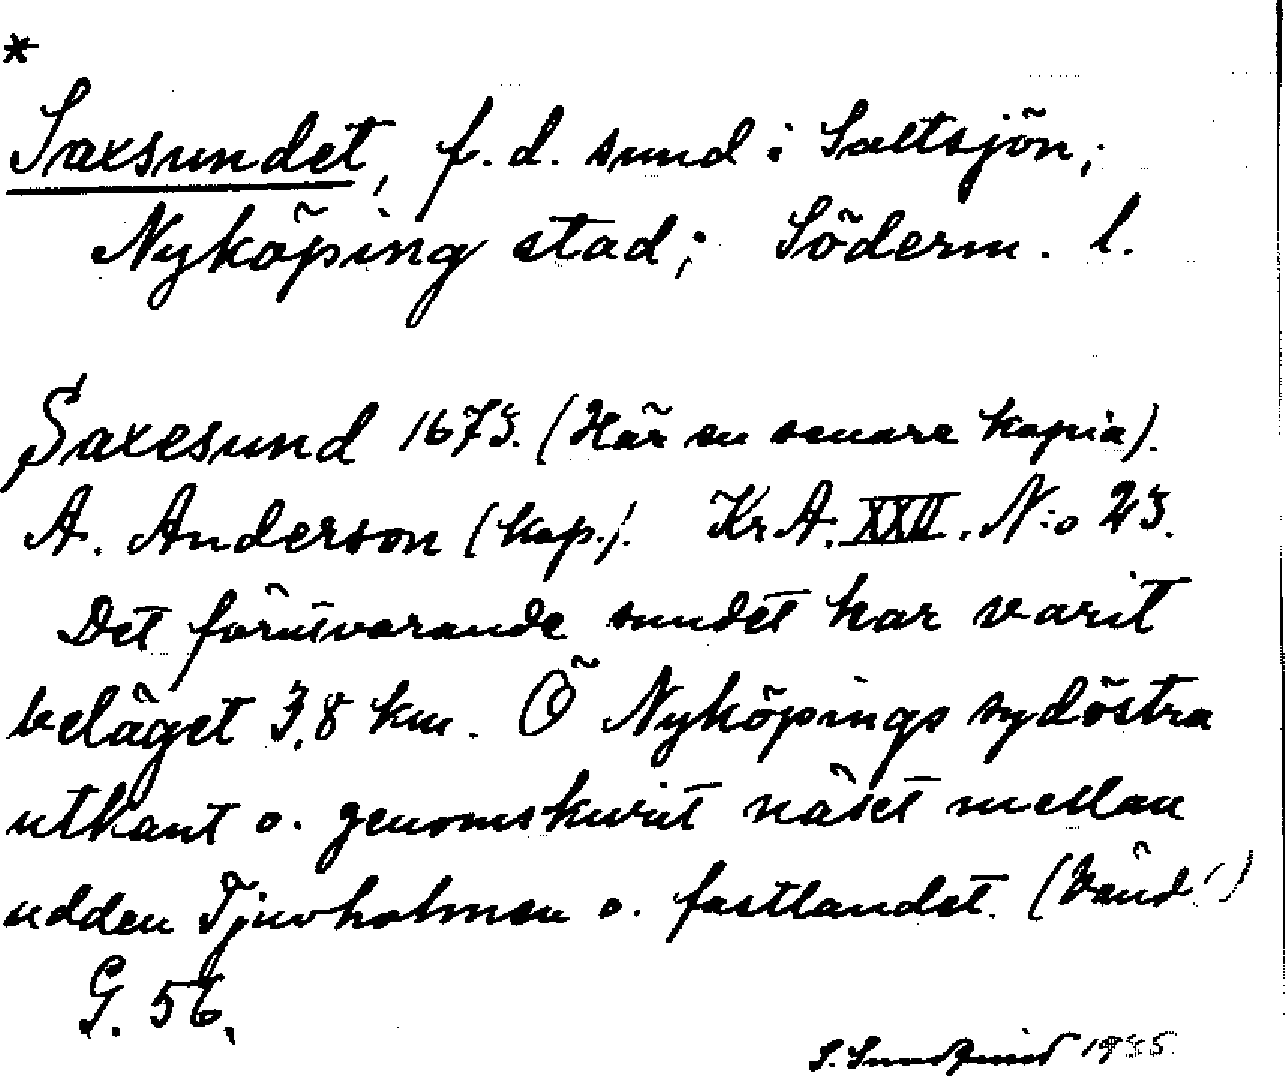 *
Saxsundet, f. d. sund i Saltsjön;
Nyköping stad; Söderm. l.
Saxesund 1673. (Här en senare kopia).
A. Anderson (kop.). Kr. A. XXII. N:o 23.
Det förutvarande sundet har varit
beläget 3,8 km. Ö Nyköpings sydöstra
utkant o. genomskurit näset mellan
udden Tjuvholmen o. fastlandet. (Vänd!)
G. 56.
S. 1935.